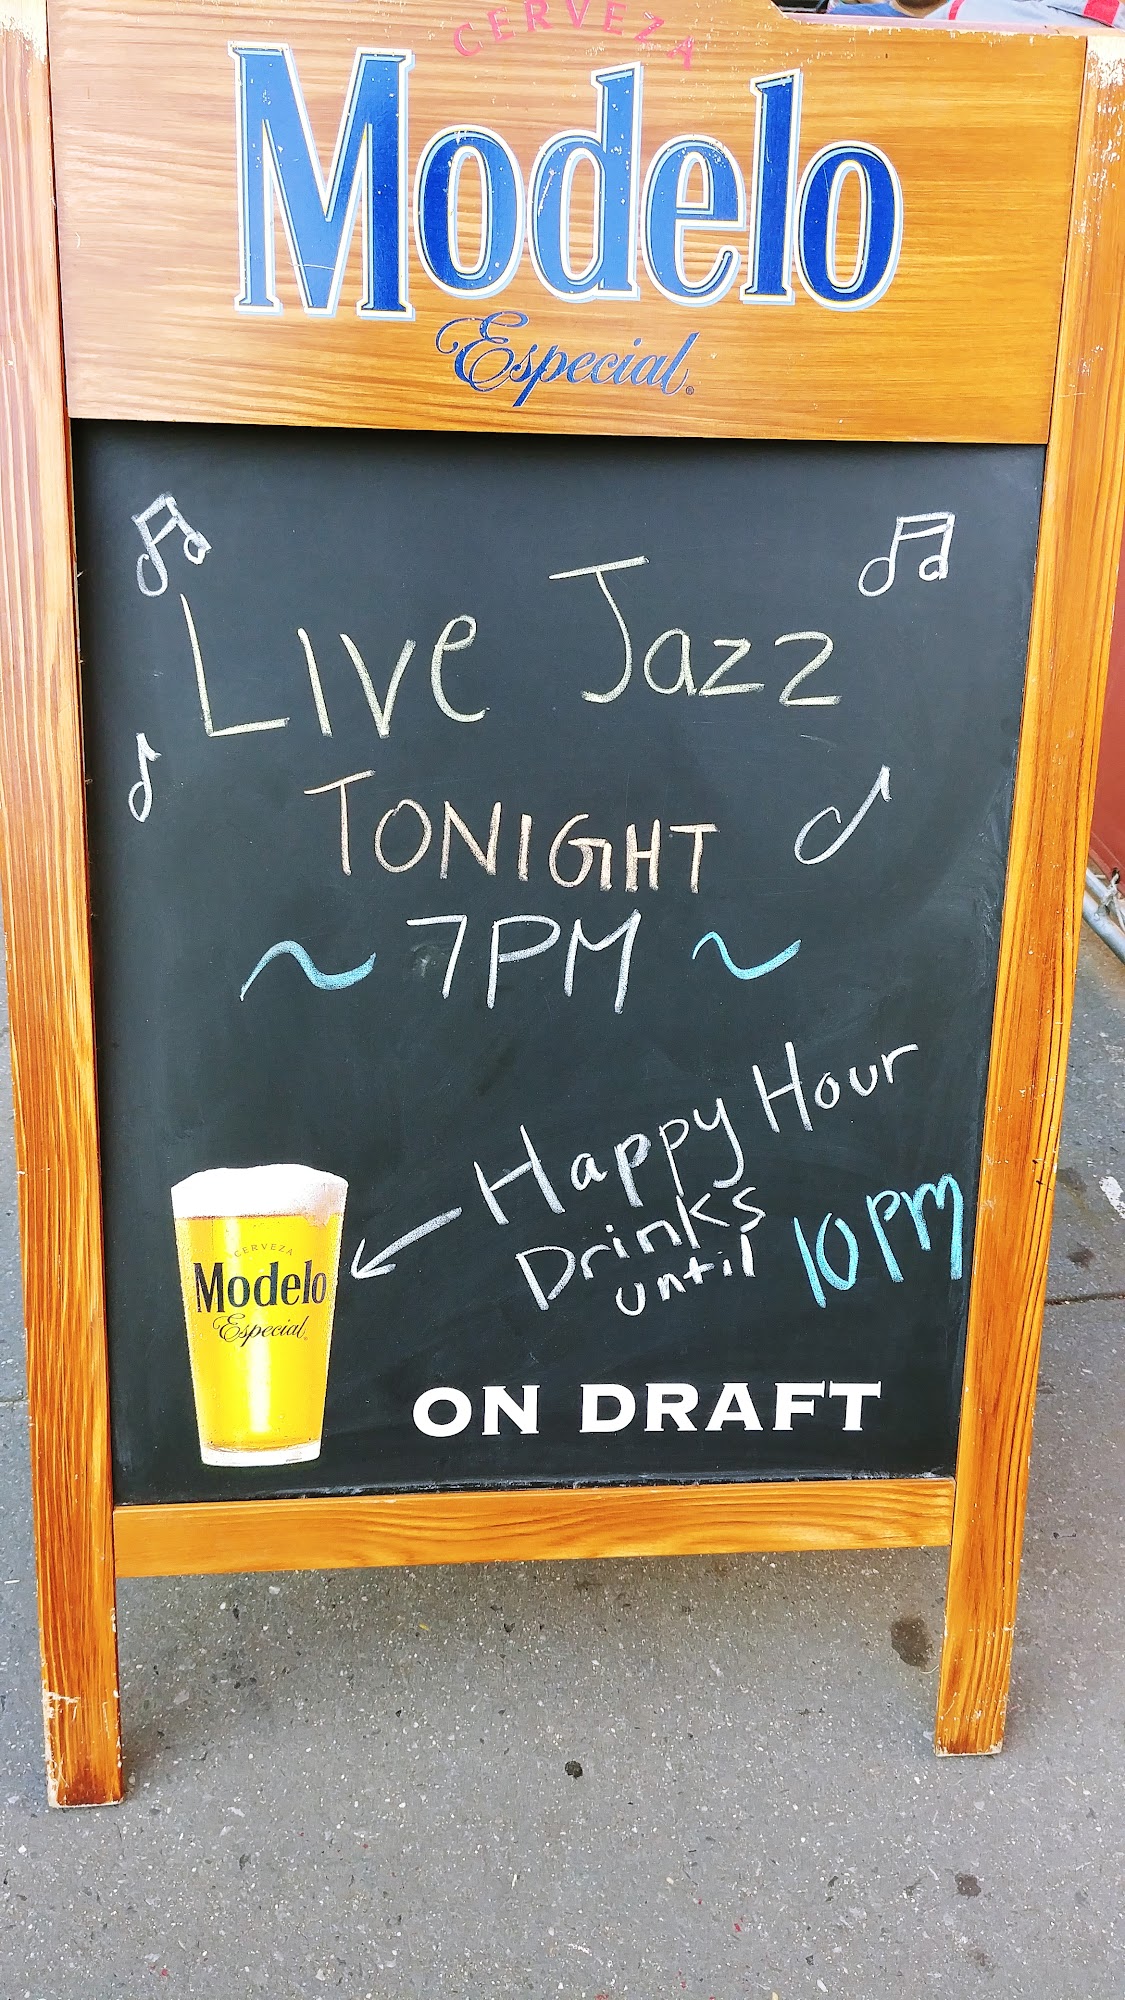 CERVEZA
Modelo
Especial
Live Jazz
TONIGHT
~ 7PM ~
Happy Hour
Drinks
until 10PM
CERVEZA
Modelo
Especial
ON DRAFT